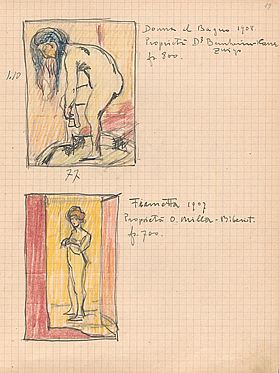 Donna al Bagno 1908
Proprietà Dr
fr. 800.
110
77
Fiametta 1907
Proprietà O. Miller - Biberist.
fr. 700.